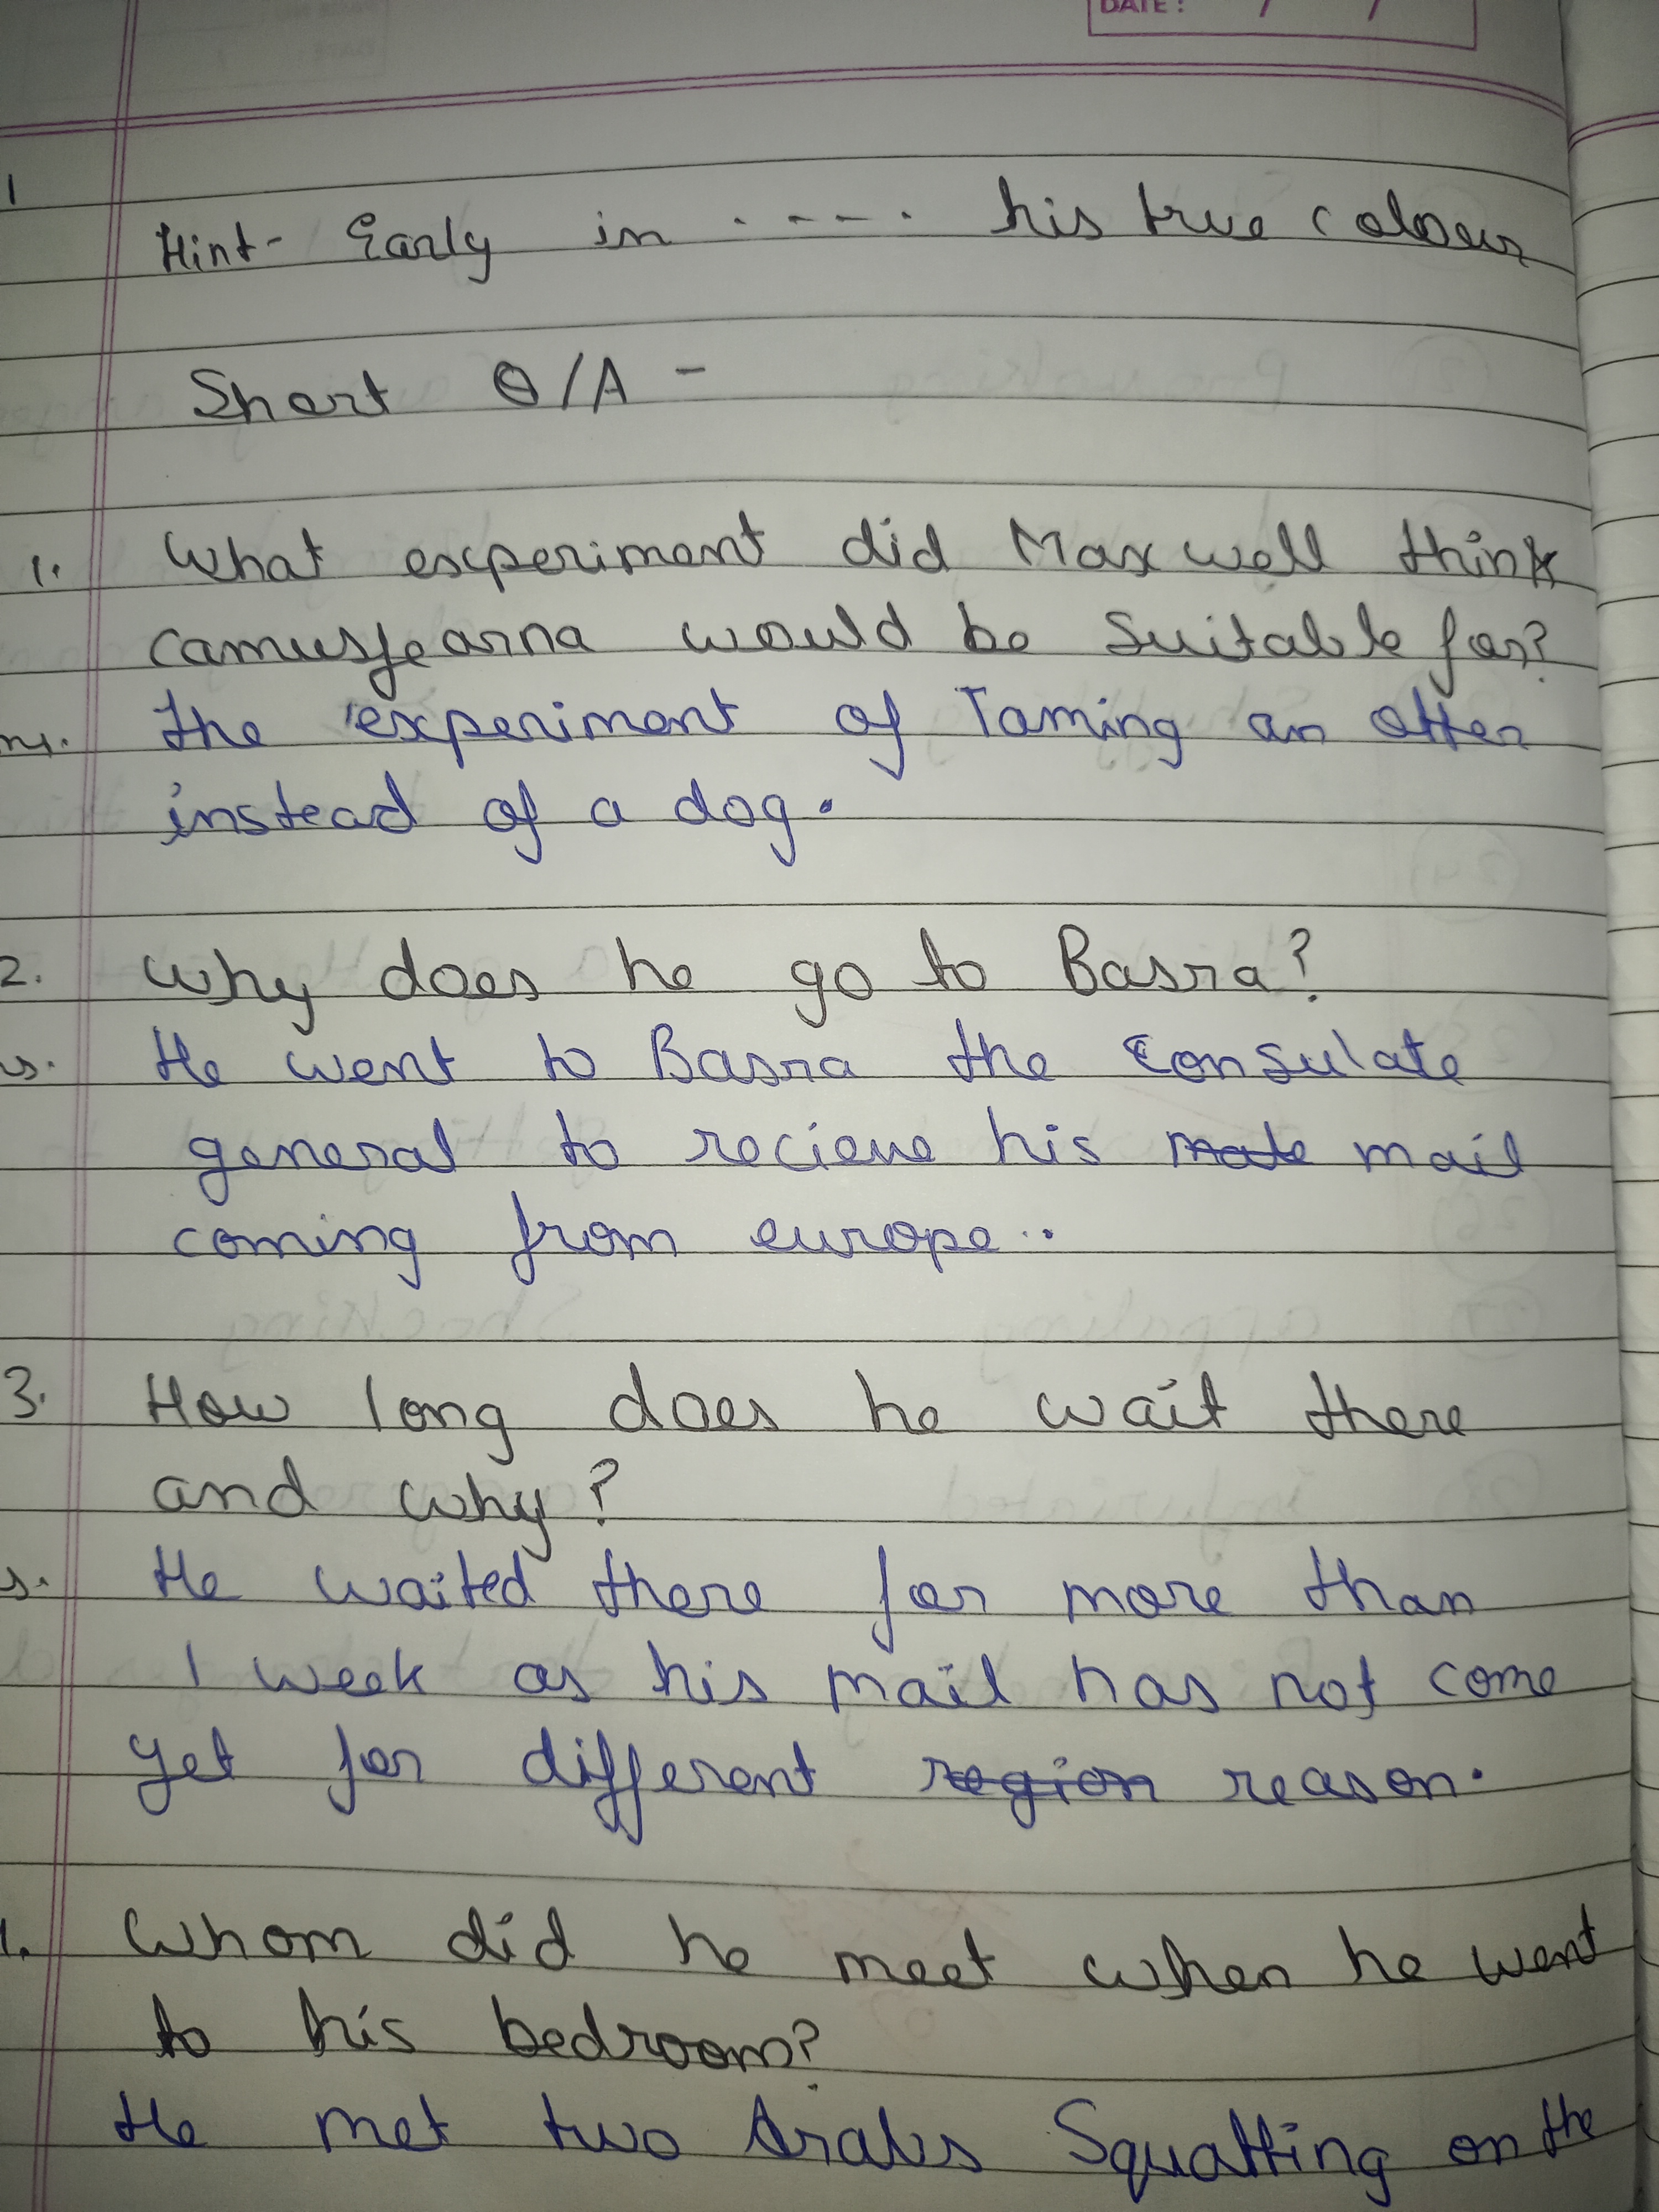 DATE: / /
1
Hint- Early in ..... his true colour
Short Q/A -
1. What experiment did Maxwell think
camusfearna would be Suitable for?
The experiment of Taming an otter
instead of a dog.
2. Why does he go to Basra?
s. He went to Basra the Consulate
general to recieve his mail
coming from europe..
3. How long does he wait there
and why?
s. He waited there for more than
1 week as his mail has not come
yet for different region reason.
1. Whom did he meet when he went
to his bedroom?
He met two Arabs Squatting on the